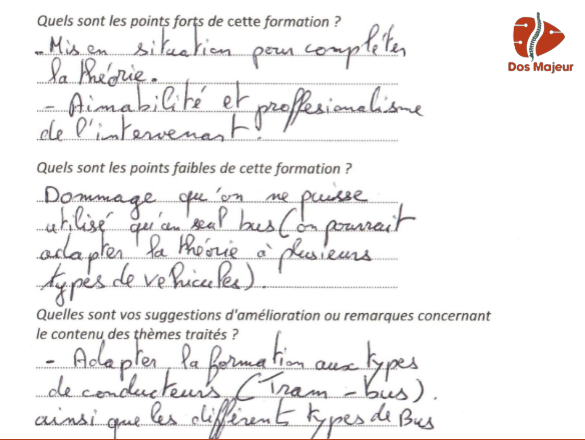 Quels sont les points forts de cette formation ?
Dos Majeur
- Mis en situation pour compléter
la théorie.
- Aimabilité et proffesionalisme
de l'intervenant.
Quels sont les points faibles de cette formation ?
Dommage qu'on ne puisse
utilisé qu'un seul bus (on pourrait
adapter la théorie à plusieurs
types de vehicules).
Quelles sont vos suggestions d'amélioration ou remarques concernant
le contenu des thèmes traités ?
- Adapter la formation aux types
de conducteurs (Tram - bus).
ainsi que les différent types de Bus